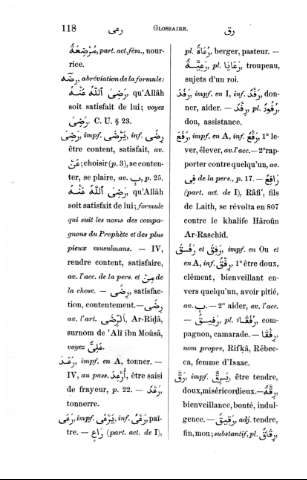 118 رعى GLOSSAIRE. رق
مُرْضِعَةٌ, part. act. fém., nour-
rice.
رضه, abréviation de la formule:
رَضِىَ ٱللّٰهُ عَنْهُ qu'Allâh
soit satisfait de lui; voyez
رَضِىَ. C. U. § 23.
رَضِىَ, impf. يَرْضَى, inf. رِضًى
être content, satisfait, av.
عَنْ; choisir (p. 3), se conten-
ter, se plaire, av. بِ, p. 25.
رَضِىَ ٱللّٰهُ عَنْهُ qu'Allâh
soit satisfait de lui; formule
qui suit les noms des compa-
gnons du Prophète et des plus
pieux musulmans. — IV,
rendre content, satisfaire,
av. l'acc. de la pers. et مِنْ de
la chose. — رِضًى, satisfac-
tion, contentement. — رِضَى
av. l'art. ٱلرِّضَى, Ar-Riḍâ,
surnom de 'Alî ibn Moûsâ,
voyez عَلِىٌّ.
رَعَدَ, impf. en A, tonner. —
IV, au pass. أُرْعِدَ, être saisi
de frayeur, p. 22. — رَعْدٌ,
tonnerre.
رَعَى, impf. يَرْعَى, inf. رَعْىٌ, paî-
tre. — رَاعٍ (part. act. de I),
pl. رُعَاةٌ, berger, pasteur. —
رَعِيَّةٌ, pl. رَعَايَا, troupeau,
sujets d'un roi.
رَفَدَ, impf. en I, inf. رَفْدٌ, don-
ner, aider. — رِفْدٌ, pl. رُفُودٌ,
don, assistance.
رَفَعَ, impf. en A, inf. رَفْعٌ, 1° le-
ver, élever, av. l'acc. — 2° rap-
porter contre quelqu'un, av.
فِى de la pers., p. 17. — رَافِعٌ
(part. act. de I), Râfi', fils
de Laith, se révolta en 807
contre le khalife Hâroûn
Ar-Raschîd.
رَفَقَ et رَفِقَ, impf. en Ou et
en A, inf. رِفْقٌ, 1° être doux,
clément, bienveillant en-
vers quelqu'un, avoir pitié,
av. بِ. — 2° aider, av. l'acc.
— رَفِيقٌ, pl. رُفَقَاءُ, com-
pagnon, camarade. — رِفْقَا,
nom propre, Rifḳâ, Rébec-
ca, femme d'Isaac.
رَقَّ, impf. يَرِقُّ, être tendre,
doux, miséricordieux. — رِقَّةٌ,
bienveillance, bonté, indul-
gence. — رَقِيقٌ, adj. tendre,
fin, mou; substantif, pl. رِقَاقٌ,